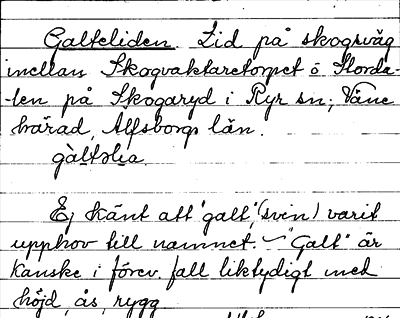 Galteliden. Lid på skogsväg
mellan Skogvaktaretorpet o Storda-
-len på Skogaryd i Ryr sn; Väne
härad, Älfsborgs län.
Ej känt att "galt", (svin) varit
upphov till namnet. "Galt" är
kanske i förev. fall liktydigt med
höjd, ås, rygg